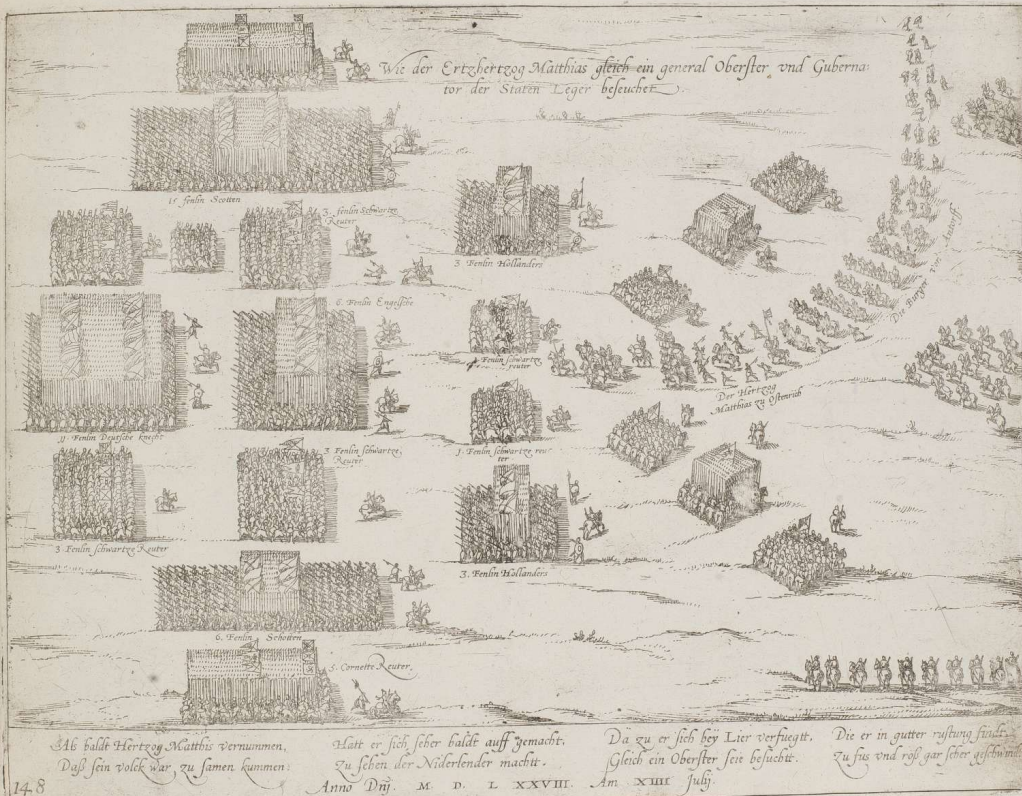 Wie der Ertzhertzog Matthias gleich ein general Oberster vnd Guberna:
tor der Staten Leger besuchet.
15. fenlin Scotten
3. fenlin Schwartze
Reuter
3. Fenlin Hollanders
6. Fenlin Engelsche
4. Fenlin schwartze
reuter
Die Burger von Antorff
Der Hertzog
Matthias zu Ostenrich
11. Fenlin Deutsche knecht
3 Fenlin schwartze
Reuter
1. Fenlin schwartze reu
ter
3. Fenlin schwartze Reuter
3. Fenlin Hollanders
6. Fenlin Schotten
5. Cornette Reuter
Als baldt Hertzog Matthis vernummen,
Daß sein volck war zu samen kummen:
Hatt er sich seher baldt auff gemacht,
Zu sehen der Niderlender macht.
Da zu er sich bey Lier verfuegtt.
Gleich ein Oberster seie besuchtt.
Die er in gutter rustung findt.
Zu fus vnd röß gar seher geschwind
Anno Dnj. M D. L XXVIII. Am XIIII Julij
148